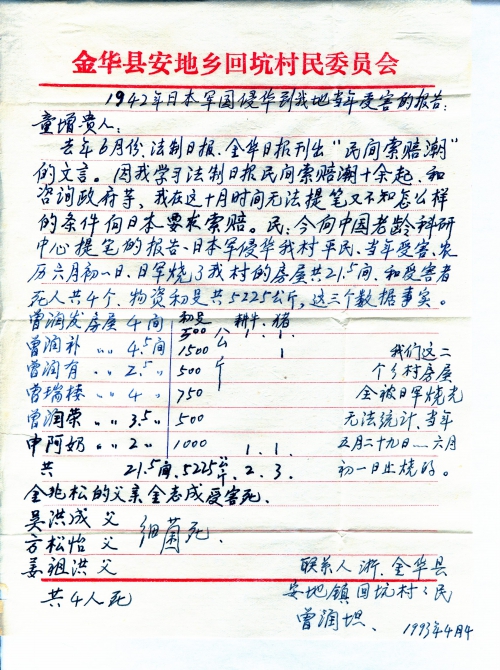 金华县安地乡回坑村民委员会
1942年日本军国侵华到我地当年受害的报告:
童增贵人:
去年6月份,法制日报、金华日报刊出“民间索赔潮”
的文言。因我学习法制日报民间索赔潮十余起、和
咨询政府等,我在这十月时间无法提笔又不知怎么样
的条件向日本要求索赔。民:今向中国老龄科研
中心提笔的报告、日本军侵华我村平民、当年受害、农
历六月初一日、日军烧了我村的房屋共21.5间、和受害者
死人共4个、物资和足共5225公斤,这三个数据事实。
曾润发房屋 4间 和足500公斤 耕牛1. 猪1.
曾润补 〃〃 4.5间 1500 1
曾润有 〃〃 2.5〃 500
曾瑞棱 〃〃 4〃 750
曾润荣 〃〃 3.5〃 500
申阿奶 〃〃 2〃 1000 1. 1.
共 21.5间.5225公斤.2.3.
我们这二
个乡村房屋
全被日军烧光
无法统计、当年
五月二十九日—六月
初一日止烧的。
金兆松的父亲金志成受害死.
吴洪成 父
方松怡 父 细菌死.
姜祖洪 父
共4人死
联系人 浙.金华县
安地镇回坑村村民
曾润坦.
1993年4月4